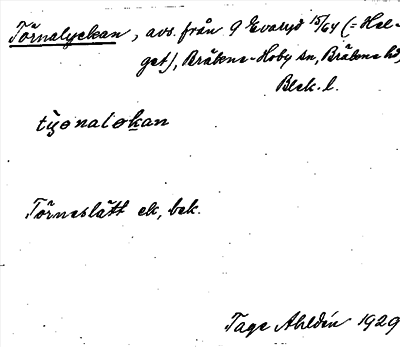 Törnalyckan, avs. från 9 Evaryd 15/64 (= Hel-
get), Bräkne-Hoby sn, Bräkne hd,
Blek. l.
Törneslätt ek, bek.
Tage Ahldén 1929